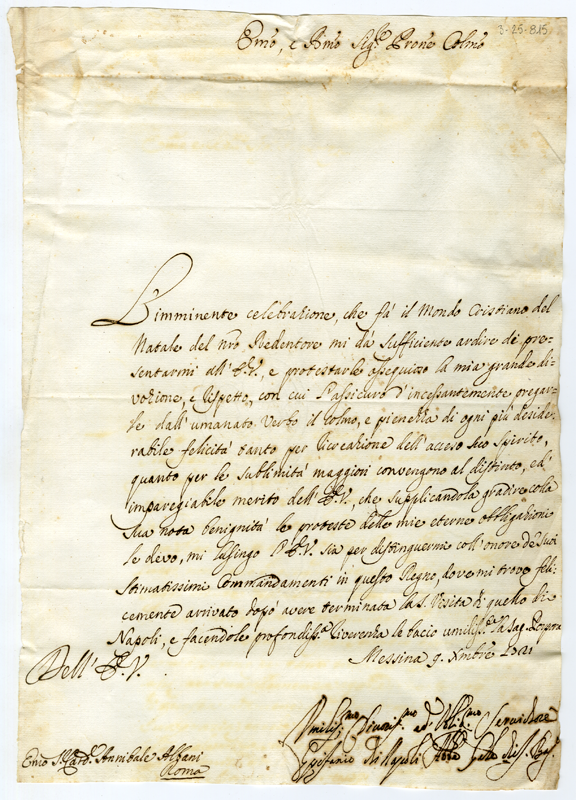 3-25-815
Emo, e Rmo Sig.re Prone Colmo
L'imminente celebrazione, che fà il Mondo Cristiano del
Natale del nrõ Redentore mi dà sufficiente ardire di pre=
sentarmi all'E.V., e protestarle ossequioso la mia grande di=
vozione, e rispetto, con cui l'assicuro d'incessantemente pregar=
le dall'umanato Verbo il colmo, e pienezza di ogni più deside=
rabile felicità tanto per ricreazione dell'acceso suo spirito,
quanto per le sublimità maggiori convengono al distinto, ed
impareggiabile merito dell'E.V., che supplicandola gradire colla
sua nota benignità le proteste delle mie eterne obbligazioni
le devo, mi lusingo l'E.V. sia per distinguermi coll'onore de suoi
stimatissimi Commandamenti in questo Regno, dove mi trovo feli=
cemente arrivato dopo avere terminata la S. Visita di quello di
Napoli, e facendole profondiss.a riverenza le bacio umiliss.e la Sag. Porpora
Messina 9. Xmbre
Dell'E.V.
Umiliss.mo Divotiss.mo ed Obblig.mo Servidore
di Napoli
Emo S. Card. Annibale Albani
Roma